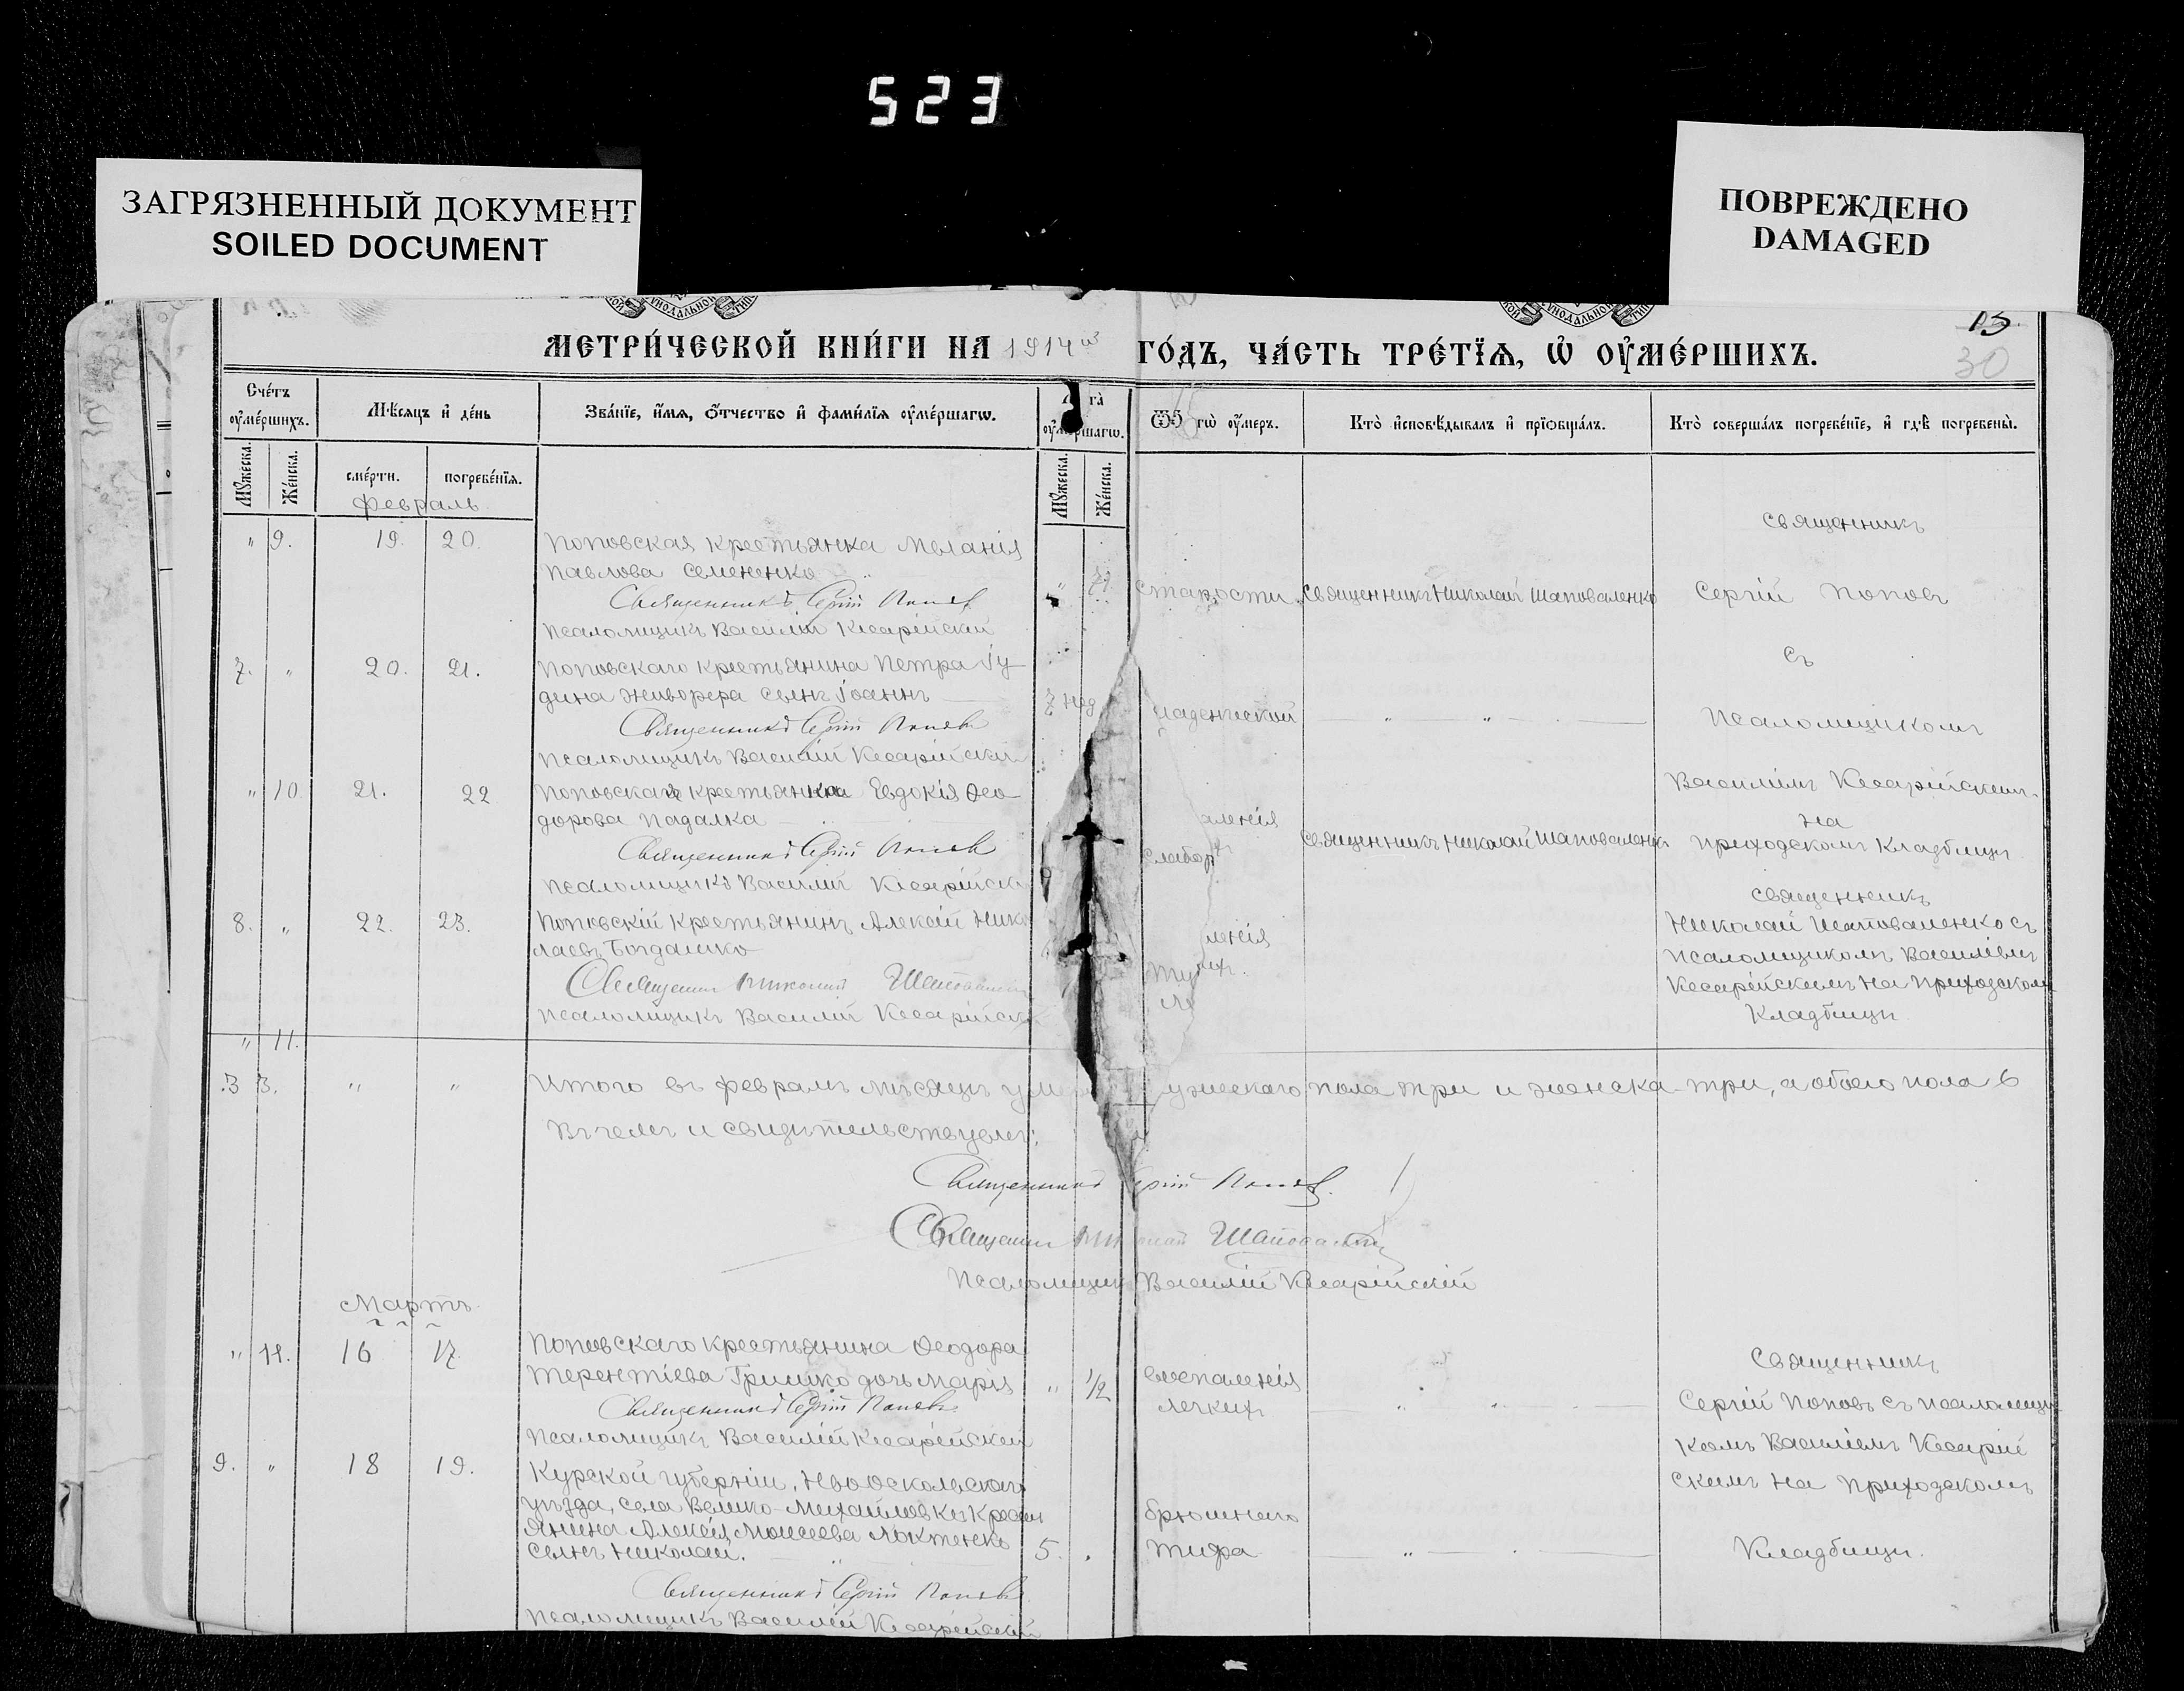 523
ЗАГРЯЗНЕННЫЙ ДОКУМЕНТ
SOILED DOCUMENT
ПОВРЕЖДЕНО
DAMAGED
13
30
МЕТРИ́ЧЕСКОЙ КНИ́ГИ НА 1914й ГО́ДЪ, ЧА́СТЬ ТРЕ́ТЇѦ, Ѡ҆ ОУ҆МЕ́РШИХЪ.
Сче́тъ оу҆ме́ршихъ.
Мꙋ́жеска.
Же́нска.
Мѣ́сяцъ и҆ де́нь
сме́рти.
погребе́нїя.
Зва́нїе, и҆́мя, ѻ҆́тчество и҆ фами́лїя оу҆ме́ршагѡ.
Мꙋ́жеска.
Же́нска.
оу҆́меръ.
Кто̀ и҆сповѣ́дывалъ и҆ прїѡбща́лъ.
Кто̀ соверша́лъ погребе́нїе, и҆ гдѣ̀ погребены̀.
Февраль
" 9. 19. 20. Поповская крестьянка Меланія
Павлова Семененко
старости. Священникъ Николай Шаповаленко
Священникъ Сергій Поповъ
Псаломщикъ Василій Кесарійскій
Священникъ
Сергій Поповъ
съ
Псаломщикомъ
Василіемъ Кесарійскимъ
на
приходскомъ кладбищѣ
7. " 20. 21. Поповскаго крестьянина Петра Іу-
дина Живорера сынъ Іоаннъ
7 нед
ладенческой " "
Священникъ Сергій Поповъ
Псаломщикъ Василій Кесарійскій
" 10 21. 22 Поповская крестьянка Евдокія Ѳео-
дорова Падалка
аленія
Священникъ Николай Шаповаленко
Священникъ Сергій Поповъ
Псаломщикъ Василій Кесарійск
8. " 22. 23. Поповскій крестьянинъ Алексій Нико
лаевъ Богдашко
ленія
Священникъ Николай Шаповаленко
Псаломщикъ Василій Кесарійск
Священникъ
Николай Шаповаленко съ
псаломщикомъ Василіемъ
Кесарійскимъ на приходскомъ
кладбищѣ
" 11.
3 3. " " Итого въ февралѣ мѣсяцѣ ум ужескаго пола три и женска три, а обоего пола 6
Въ чемъ и свидѣтельствуемъ:
Священникъ Сергій Поповъ.
Священникъ Николай Шаповаленко
Псаломщикъ Василій Кесарійскій
Мартъ
" 11. 16 17. Поповскаго крестьянина Ѳеодора
Терентіева Гришко дочь Марія " 1/2
воспаленія
легкихъ " "
Священникъ Сергій Поповъ
Псаломщикъ Василій Кесарійскій
Священникъ
Сергій Поповъ съ псаломщи-
комъ Василіемъ Кесарій
скимъ на приходскомъ
кладбищѣ.
9. " 18 19. Курской губерніи, Новооскольскаго
уѣзда, села Велико-Михайловки крестьянина
Алексія Моисеева
сынъ Николай. 5.
брюшнаго
тифа "
Священникъ Сергій Поповъ
Псаломщикъ Василій Кесарійскій